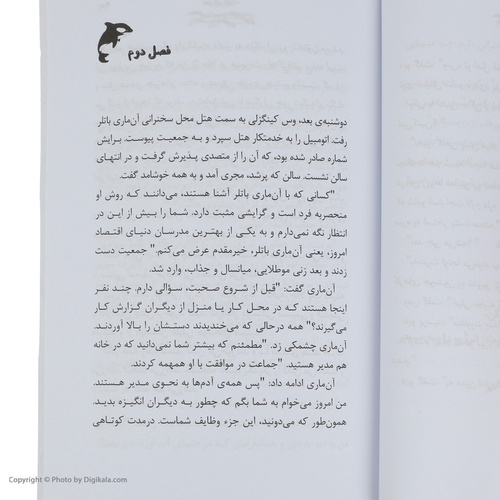 فصل دوم
دوشنبه‌ی بعد، وس کینگزلی به سمت هتل محل سخنرانی آن‌ماری باتلر
رفت. اتومبیل را به خدمتکار هتل سپرد و به جمعیت پیوست. برایش
شماره صادر شده بود، که آن را از متصدی پذیرش گرفت و در انتهای
سالن نشست. سالن که پرشد، مجری آمد و به همه خوشامد گفت.
"کسانی که با آن‌ماری باتلر آشنا هستند، می‌دانند که روش او
منحصربه فرد است و گرایشی مثبت دارد. شما را بیش از این در
انتظار نگه نمی‌دارم و به یکی از بهترین مدرسان دنیای اقتصاد
امروز، یعنی آن‌ماری باتلر، خیرمقدم عرض می‌کنم." جمعیت دست
زدند و بعد زنی موطلایی، میانسال و جذاب، وارد شد.
آن‌ماری گفت: "قبل از شروع صحبت، سؤالی دارم. چند نفر
اینجا هستند که در محل کار یا منزل از دیگران گزارش کار
می‌گیرند؟" همه درحالی که می‌خندیدند دستشان را بالا آوردند.
آن‌ماری چشمکی زد. "مطمئنم که بیشتر شما نمی‌دانید که در خانه
هم مدیر هستید." جماعت در موافقت با او همهمه کردند.
آن‌ماری ادامه داد: "پس همه‌ی آدم‌ها به نحوی مدیر هستند.
من امروز می‌خوام به شما بگم که چطور به دیگران انگیزه بدید.
همون‌طور که می‌دونید، این جزء وظایف شماست. درمدت کوتاهی
Copyright © Photo by Digikala.com